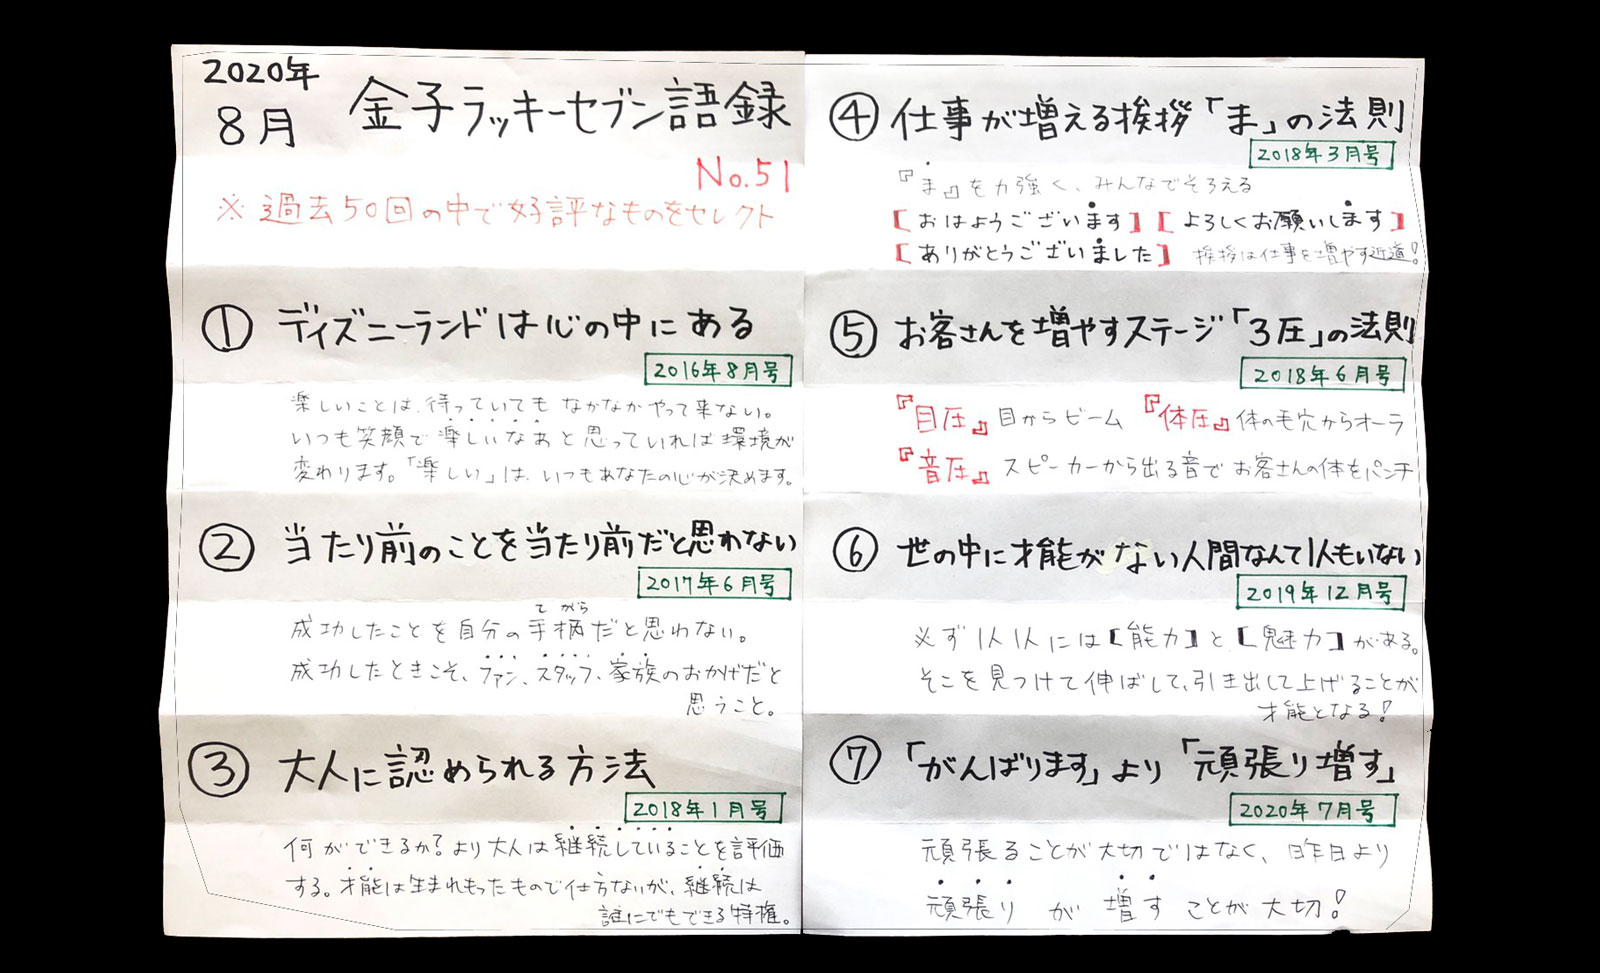 2020年
8月
金子ラッキーセブン語録
No.51
※過去50回の中で好評なものをセレクト
① ディズニーランドは心の中にある
2016年8月号
楽しいことは、待っていても なかなかやって来ない。
いつも笑顔で楽しいなあと思っていれば環境が
変わります。「楽しい」は、いつもあなたの心が決めます。
② 当たり前のことを当たり前だと思わない
2017年6月号
てがら
成功したことを自分の手柄だと思わない。
成功したときこそ、ファン、スタッフ、家族のおかげだと
思うこと。
③ 大人に認められる方法
2018年1月号
何ができるか?より大人は継続していることを評価
する。才能は生まれもったもので仕方ないが、継続は
誰にでもできる特権。
④ 仕事が増える挨拶「ま」の法則
2018年3月号
『ま』を力強く、みんなでそろえる
【おはようございます】【よろしくお願いします】
【ありがとうございました】 挨拶は仕事を増やす近道!
⑤ お客さんを増やすステージ「3圧」の法則
2018年6月号
『目圧』目からビーム 『体圧』体の毛穴からオーラ
『音圧』スピーカーから出る音でお客さんの体をパンチ
⑥ 世の中に才能がない人間なんて1人もいない
2019年12月号
必ず1人1人には【能力】と【魅力】がある。
そこを見つけて伸ばして、引き出して上げることが
才能となる!
⑦ 「がんばります」より「頑張り増す」
2020年7月号
頑張ることが大切ではなく、昨日より
頑張りが増すことが大切!